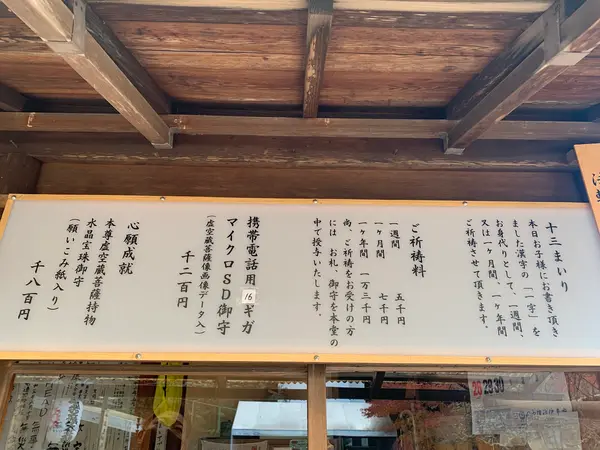 十三まいり
本日お子様にお書き頂き
ました漢字の「一字」を
お身代りとして、一週間、
又は一ヶ月間、一ヶ年間
ご祈祷させて頂きます。
ご祈祷料
一週間 五千円
一ヶ月間 七千円
一ヶ年間 一万三千円
尚、ご祈祷をお受けの方
には、お札、御守を本堂の
中で授与いたします。
携帯電話用16ギガ
マイクロSD御守
(虚空蔵菩薩像画像データ入)
千二百円
心願成就
本尊虚空蔵菩薩持物
水晶宝珠御守
(願いこみ紙入り)
千八百円
28 29 30